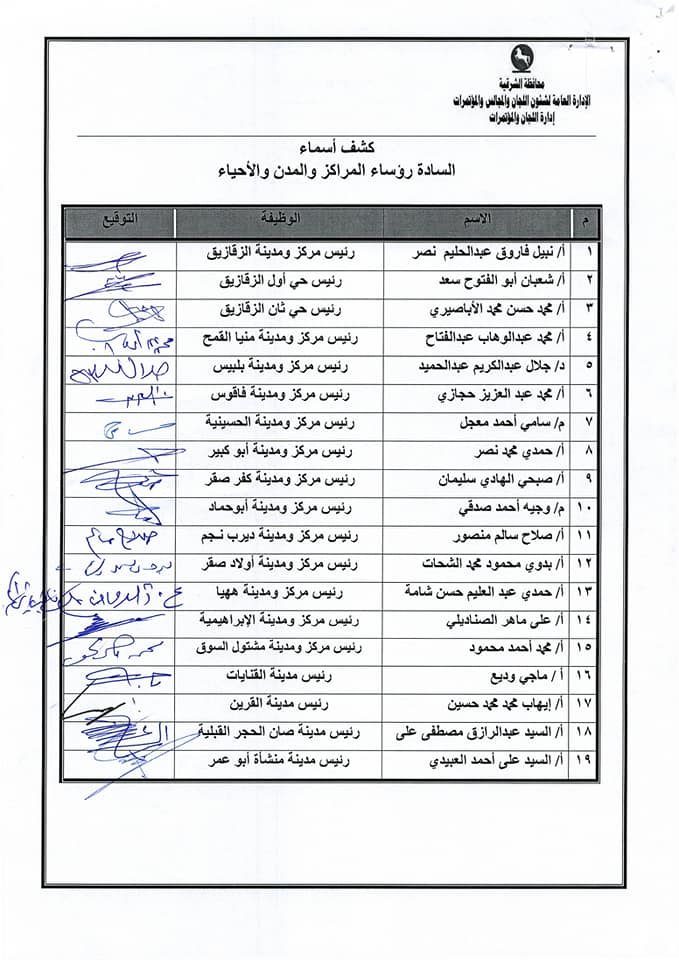 محافظة الشرقية
الإدارة العامة لشئون اللجان والمجالس والمؤتمرات
إدارة اللجان والمؤتمرات
كشف أسماء
السادة رؤساء المراكز والمدن والأحياء
م الاسم الوظيفة التوقيع
١ أ/ نبيل فاروق عبدالحليم نصر رئيس مركز ومدينة الزقازيق
٢ أ/ شعبان أبو الفتوح سعد رئيس حي أول الزقازيق
٣ أ/ محمد حسن محمد الأباصيري رئيس حي ثان الزقازيق
٤ أ/ محمد عبدالوهاب عبدالفتاح رئيس مركز ومدينة منيا القمح
٥ د/ جلال عبدالكريم عبدالحميد رئيس مركز ومدينة بلبيس
٦ أ/ محمد عبد العزيز حجازي رئيس مركز ومدينة فاقوس
٧ م/ سامي أحمد معجل رئيس مركز ومدينة الحسينية
٨ أ/ حمدي محمد نصر رئيس مركز ومدينة أبو كبير
٩ أ/ صبحي الهادي سليمان رئيس مركز ومدينة كفر صقر
١٠ م/ وجيه أحمد صدقي رئيس مركز ومدينة أبوحماد
١١ أ/ صلاح سالم منصور رئيس مركز ومدينة ديرب نجم صلاح سالم
١٢ أ/ بدوي محمود محمد الشحات رئيس مركز ومدينة أولاد صقر
١٣ أ/ حمدي عبد العليم حسن شامة رئيس مركز ومدينة ههيا
١٤ أ/ على ماهر الصناديلي رئيس مركز ومدينة الإبراهيمية
١٥ أ/ محمد أحمد محمود رئيس مركز ومدينة مشتول السوق
١٦ أ / ماجي وديع رئيس مدينة القنايات
١٧ أ/ إيهاب محمد محمد حسين رئيس مدينة القرين
١٨ أ/ السيد عبدالرازق مصطفى على رئيس مدينة صان الحجر القبلية
١٩ أ/ السيد على أحمد العبيدي رئيس مدينة منشأة أبو عمر